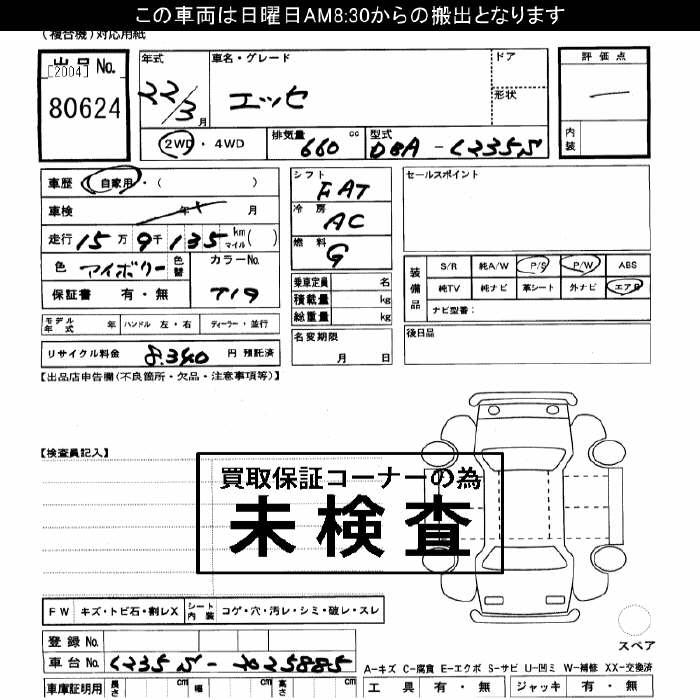 この車両は日曜日AM8:30からの搬出となります
(複合機)対応用紙
出品No.
[2004]
80624
年式 22/3月
車名・グレード エッセ
ドア
形状
評価点
内装
2WD・4WD
排気量 660 cc
型式 DBA-L235S
車歴 自家用・( )
車検 年 月
走行 15万9千135 km マイル( )
色 アイボリー 色替
カラーNo. T19
保証書 有・無
モデル年式 年 ハンドル 左・右 ディーラー・並行
リサイクル料金 8,340 円 預託済
シフト FAT
冷房 AC
燃料 G
乗車定員 名
積載量 kg
総重量 kg
名変期限
月 日
セールスポイント
装備品
S/R 純A/W P/S P/W ABS
純TV 純ナビ 革シート 外ナビ エアB
ナビ型番:
後日品
【出品店申告欄(不良箇所・欠品・注意事項等)】
【検査員記入】
買取保証コーナーの為
未検査
FW キズ・トビ石・割レX
シート内装 コゲ・穴・汚レ・シミ・破レ・スレ
登録No.
車台No. L235S-2025885
車庫証明用 長さ cm 幅 cm 高さ cm
スペア
A-キズ C-腐食 E-エクボ S-サビ U-凹ミ W-補修 XX-交換済
工具 有・無 ジャッキ 有・無